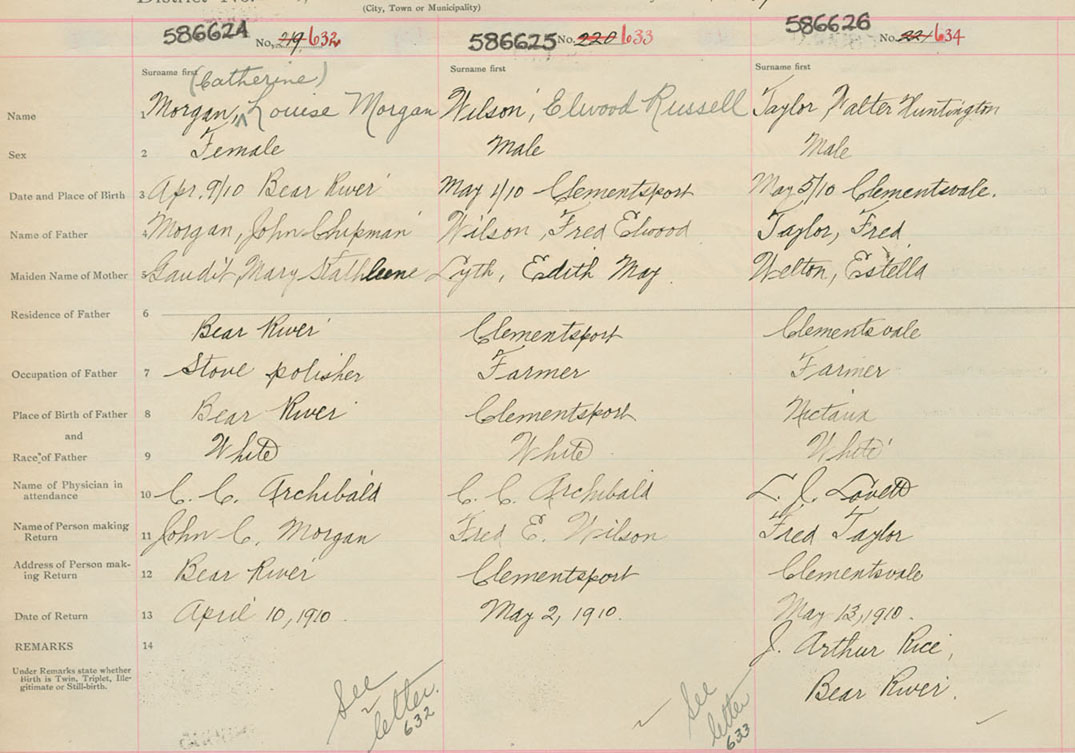 District No.
(City, Town or Municipality)
586624 No. 219 632 586625 No. 220 633 586626 No. 221 634
Surname first (Catherine) Surname first Surname first
Name 1 Morgan, ^ Louise Morgan Wilson, Elwood Russell Taylor, Walter Huntington
Sex 2 Female Male Male
Date and Place of Birth 3 Apr. 9/10 Bear River May 1/10 Clementsport May 5/10 Clementsvale.
Name of Father 4 Morgan, John Chipman Wilson, Fred Elwood Taylor, Fred
Maiden Name of Mother 5 Gaudit, Mary Kathleene Lyth, Edith May Welton, Estella
Residence of Father 6
Bear River Clementsport Clementsvale
Occupation of Father 7 Stove polisher Farmer Farmer
Place of Birth of Father 8 Bear River Clementsport Nictaux
and
Race of Father 9 White White White
Name of Physician in
attendance 10 C. C. Archibald C. C. Archibald L. J. Lovett
Name of Person making
Return 11 John C. Morgan Fred E. Wilson Fred Taylor
Address of Person mak-
ing Return 12 Bear River Clementsport Clementsvale
Date of Return 13 April 10, 1910 May 2, 1910. May 13, 1910.
REMARKS 14 J. Arthur Rice,
Under Remarks state whether
Birth is Twin, Triplet, Ille-
gitimate or Still-birth.
Bear River.
See
letter.
632
See
letter
633